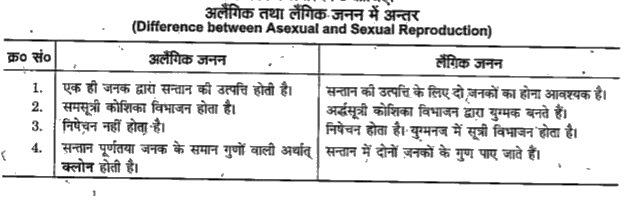 अलैंगिक तथा लैंगिक जनन में अन्तर
(Difference between Asexual and Sexual Reproduction)
क्र० सं० अलैंगिक जनन लैंगिक जनन
1. एक ही जनक द्वारा सन्तान की उत्पत्ति होती है। सन्तान की उत्पत्ति के लिए दो जनकों का होना आवश्यक है।
2. समसूत्री कोशिका विभाजन होता है। अर्द्धसूत्री कोशिका विभाजन द्वारा युग्मक बनते हैं।
3. निषेचन नहीं होता है। निषेचन होता है। युग्मनज में सूत्री विभाजन होता है।
4. सन्तान पूर्णतया जनक के समान गुणों वाली अर्थात् सन्तान में दोनों जनकों के गुण पाए जाते हैं।
क्लोन होती है।